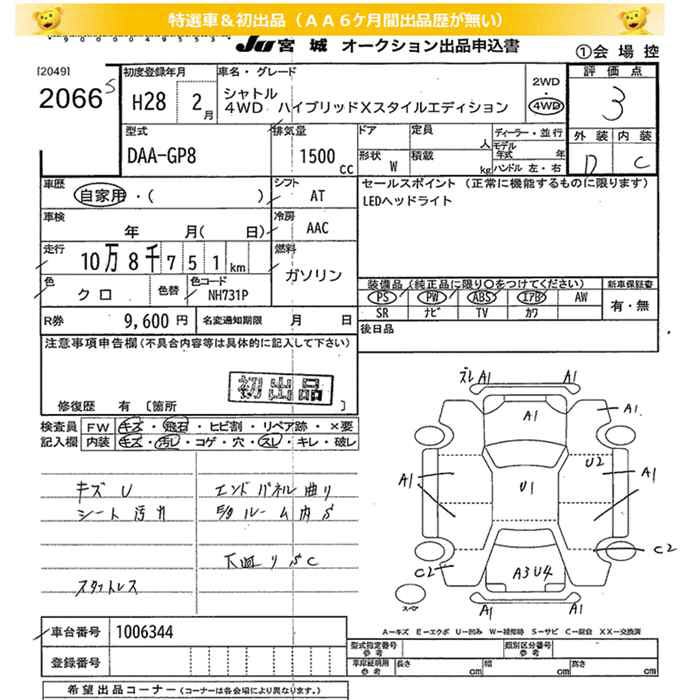 特選車＆初出品（ＡＡ６ケ月間出品歴が無い）
JU 宮城 オークション出品申込書
①会場控
[2049]
2066 S
初度登録年月
H28 2月
車名・グレード
シャトル
4WD ハイブリッドXスタイルエディション
2WD
4WD
評価点
3
外装 内装
D C
型式
DAA-GP8
排気量
1500 cc
ドア
定員 人
形状 W
積載 kg
ディーラー・並行
モデル年式 年
ハンドル 左・右
車歴
自家用・( )
シフト
AT
車検
年 月( 日)
冷房
AAC
走行
10万8千751km
燃料
ガソリン
色
クロ
色替
色コード
NH731P
R券 9,600円
名変通知期限 月 日
セールスポイント (正常に機能するものに限ります)
LEDヘッドライト
装備品 (純正品に限り○をつけてください)
新車保証書
PS PW ABS エアB AW
SR ナビ TV カワ
有・無
後日品
注意事項申告欄 (不具合内容等は具体的に記入して下さい)
初出品
修復歴 有 〔箇所 〕
検査員記入欄
FW キズ・飛石・ヒビ割・リペア跡・×要
内装 キズ・汚レ・コゲ・穴・スレ・キレ・破レ
キズ U
シート汚れ
スタットレス
エンドパネル曲り
下回りSC
ズレ A1 A1
A1
A1
U2
A1
A1
U1
C2
C2
A3U4
A1 A1
スペア
A－キズ E－エクボ U－凹み W－補修跡 S－サビ C－腐食 XX－交換済
車台番号 1006344
登録番号
型式指定番号 参考
類別区分番号 参考
車庫証明用 参考
長さ cm
幅 cm
高さ cm
希望出品コーナー (コーナーは各会場により異なります。)